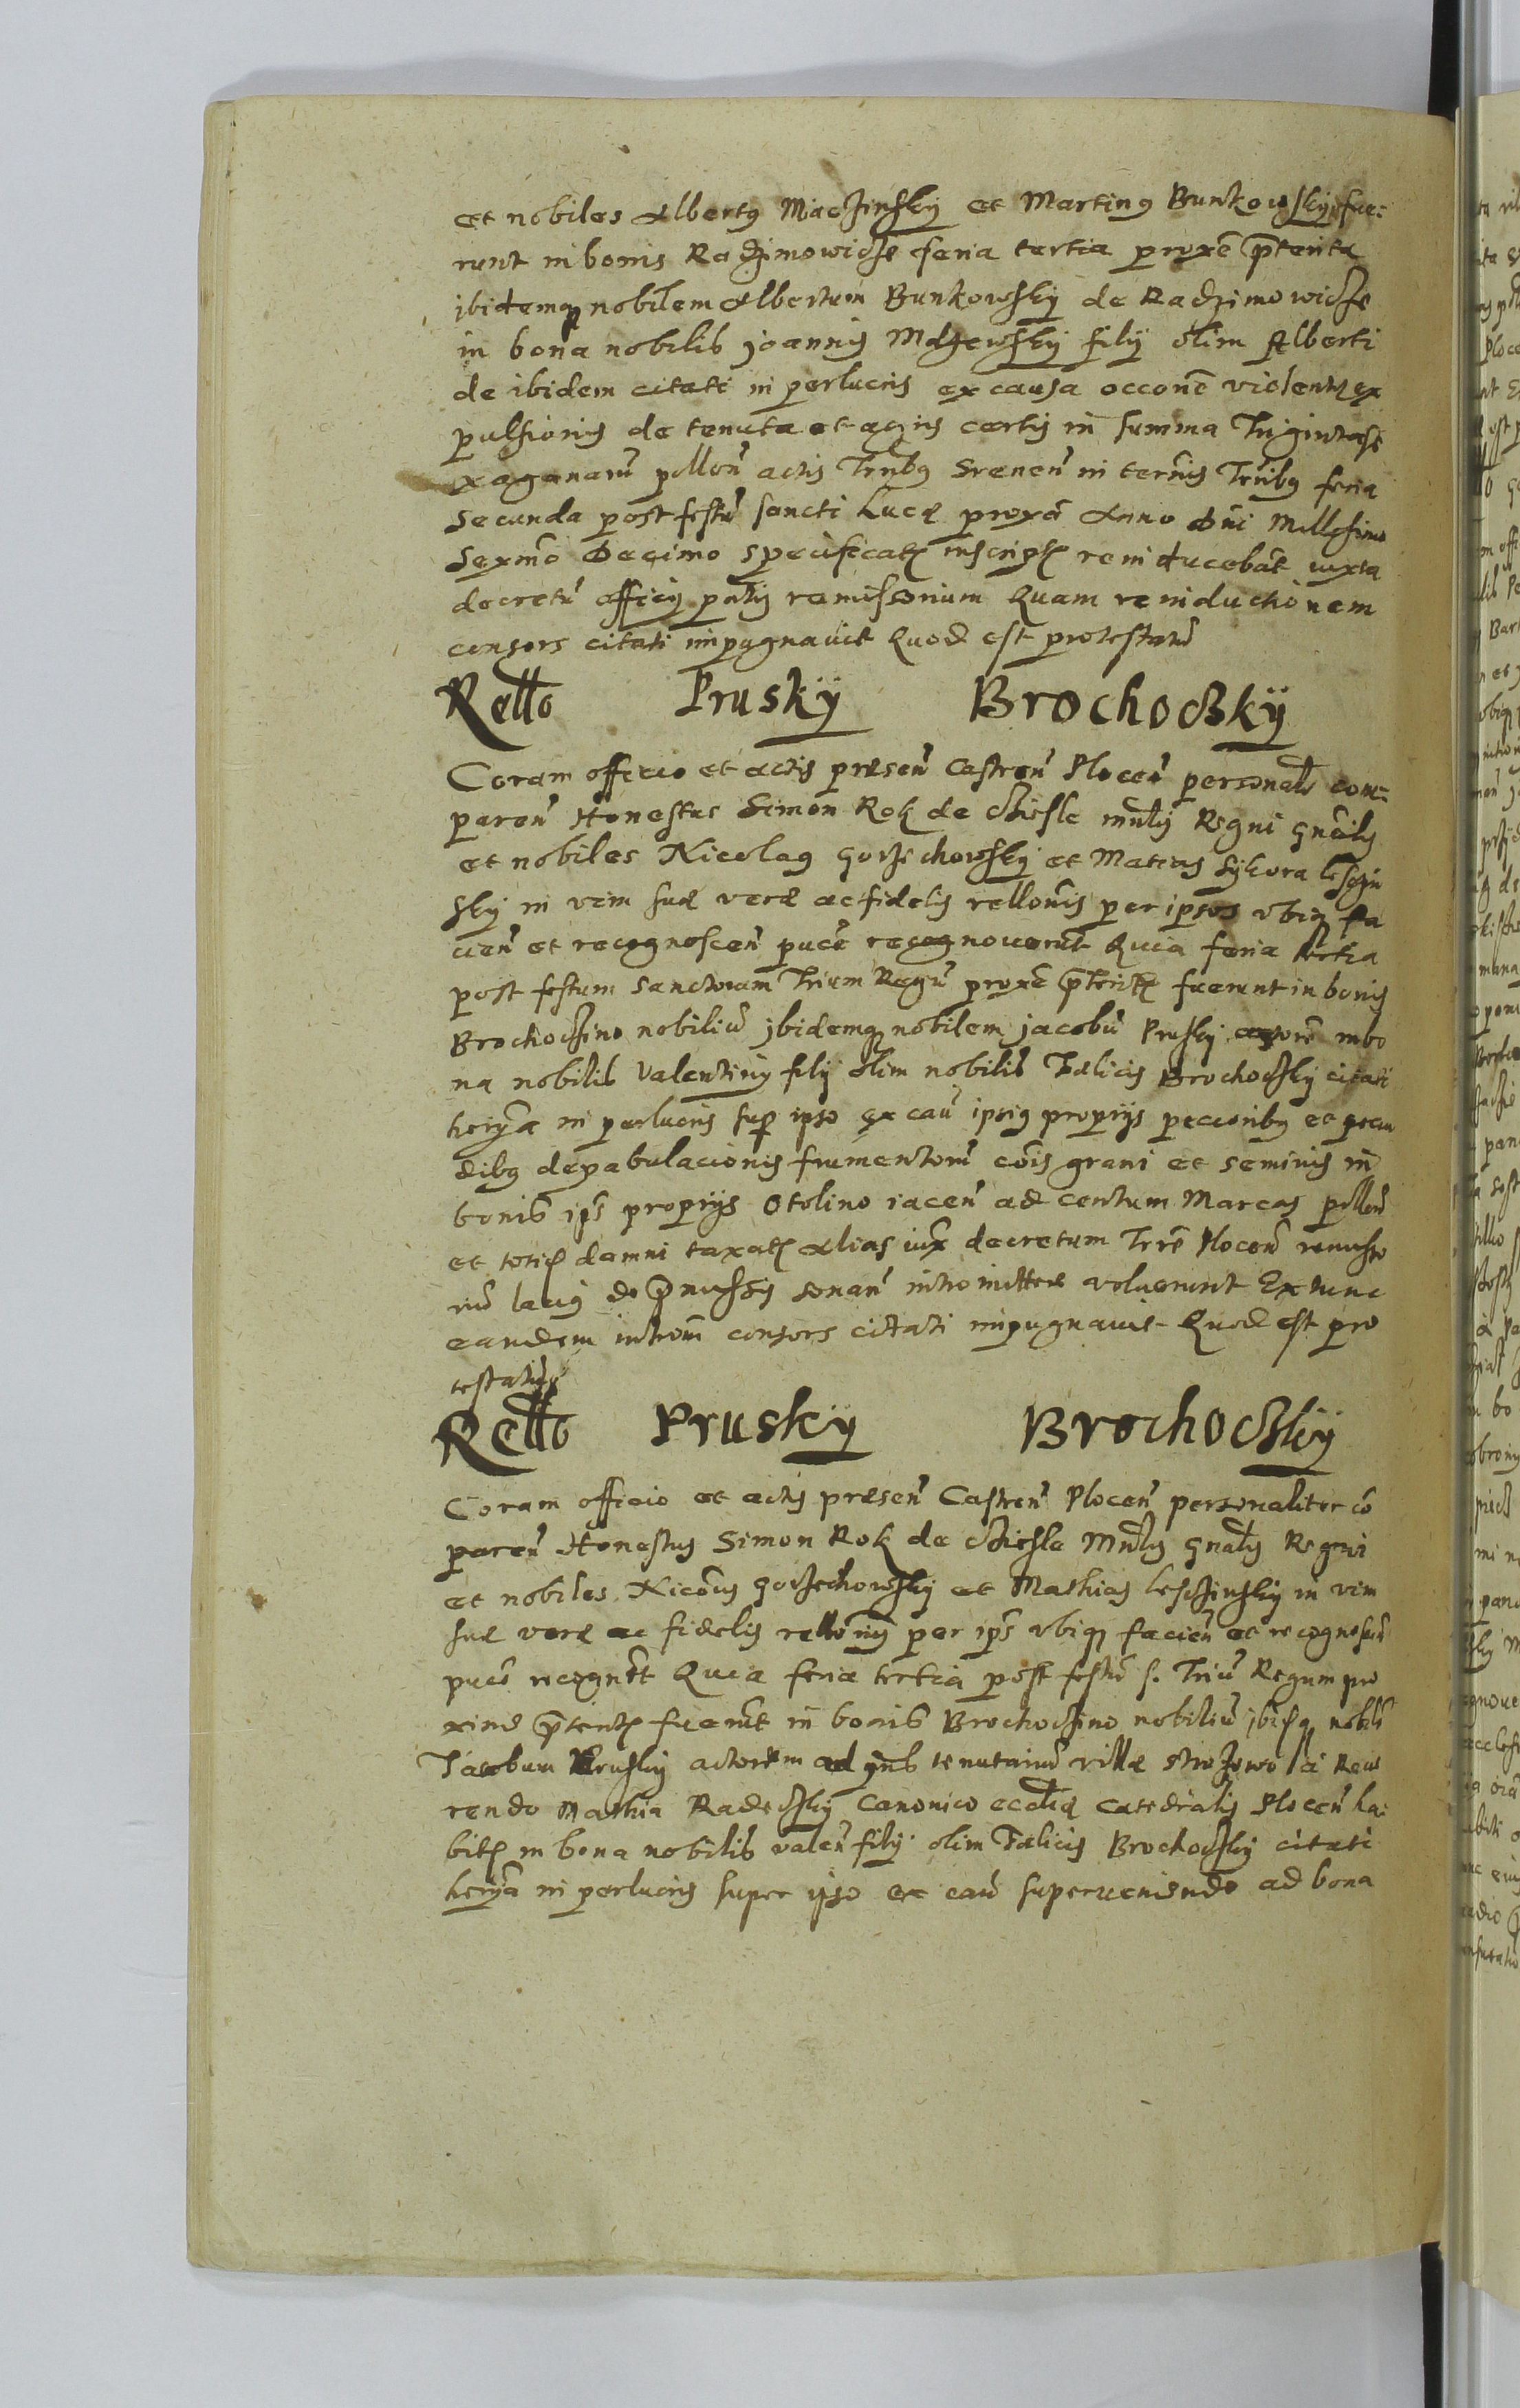 et nobiles Albertus Maczinsky et Martinus Bunkowsky fue-
runt in bonis Radzimowicze feria tertia proxe pterita
ibidemq nobilem Albertum Bunkowsky de Radzimowicze
in bona nobilis Joannis filij olim Alberti
de ibidem citati in perlucris ex causa occone violent ex
pulsionis de tenuta et agris certis in summa Triginta se
xagenarum pollon actis Trribus Srenen in terris Trribus feria
Secunda post festu sancti Lucæ proxa Anno Dni Millesimo
Sexmo Decimo specificat inscript reinducebat iuxta
decretu officij pntis remissorium Quam reinductionem
consors citati impugnavit Quod est protestatu
Rello Prusky Brochoczky
Coram officio et actis præsen Castren Plocen personalr com-
paren Honestus Simon Rok de Chisle mnlis Regni gnalis
et nobiles Nicolaus Gorzechowsky et Matias Sykora Lesczin
sky in vim suæ veræ ac fidelis rellonis per ipsos ubiq fa
cien et recognoscen puce recognoverunt Quia feria tertia
post festum sanctorum Trium Regu proxe pterit fuerunt in bonis
Brochoczino nobiliu ibidemq nobilem Jacobu Prusky actore in bo
na nobilis Valentini filij olim nobilis Fælicis Brochoczky citati
in perlucris sup ipso ex cau ipsius proprijs peccoribus et pecu
dibus depabulacionis frumentoru cois grani et seminis in
bonis ips proprijs Otolino iacen ad centum Marcas pollon
et totiq damni taxat alias iux decretum Trre Plocen remisso
riu latius de pmissis sonan intromittere voluerunt Extunc
eandem introm consors citati impugnavit Quod est pro
testatu
Rello Prusky Brochoczky
Coram officio et actis præsen Castren Plocen personaliter co
paren Honestus Simon Rok de Chisle Mnlis gnalis Regni
et nobiles Nicous Gorzechowsky et Mathias Lesczinsky in vim
suæ veræ ac fidelis rellonis per ips ubiq facien et recognoscen
puce recognrt Quia feria tertia post festu s. Triu Regum pro
xime pterit fuerut in bonis Brochoczino nobiliu ibiq nobile
Jacobum Prusky actorem ad tenutariu villæ a Reve
rendo Mathia Radeczky Canonico ecclia Catedralis Plocen ha-
bit in bona nobilis Valen filij olim Fælicis Brochoczky citati
in perlucris super ipso ex cau superveniendo ad bona